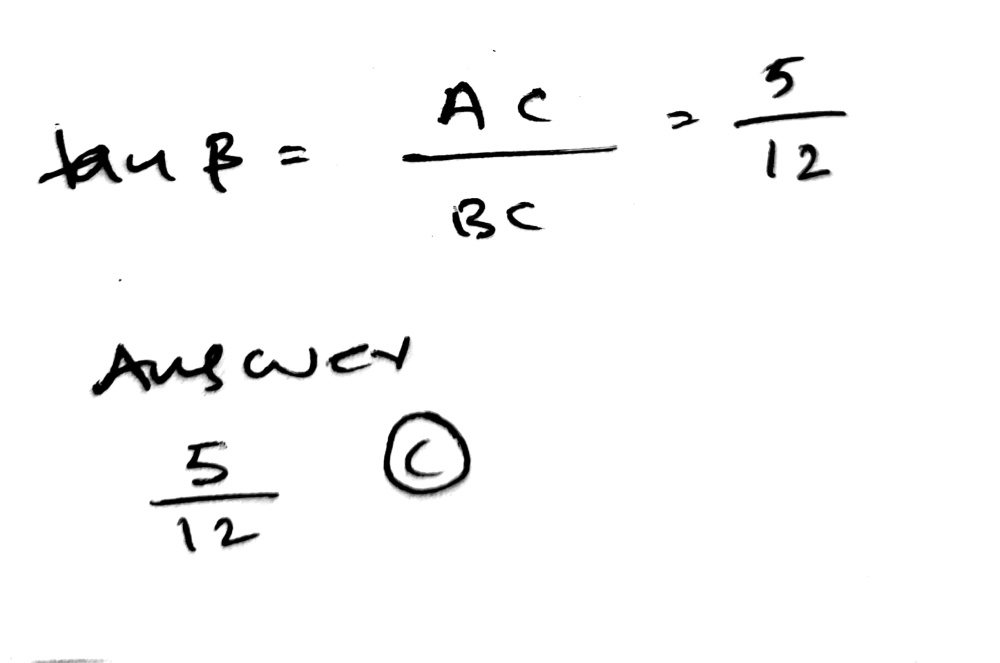 tan β = AC / BC = 5 / 12
Answer
5 / 12 (C)